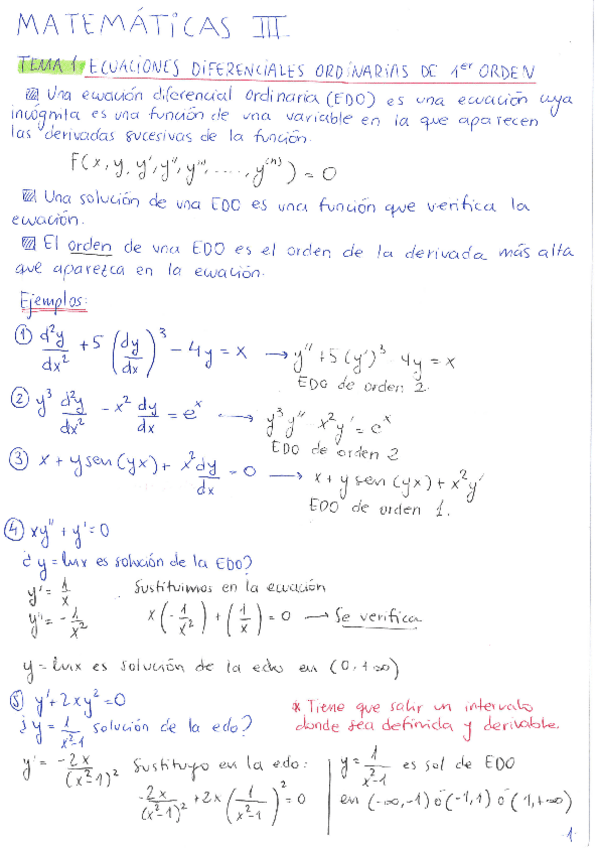 MATEMÁTICAS III
TEMA 1: ECUACIONES DIFERENCIALES ORDINARIAS DE 1er ORDEN
Una ecuación diferencial ordinaria (EDO) es una ecuación cuya
incógnita es una función de una variable en la que aparecen
las derivadas sucesivas de la función.
F(x, y, y', y'', y''', ....., y^(n)) = 0
Una solución de una EDO es una función que verifica la
ecuación.
El orden de una EDO es el orden de la derivada más alta
que aparezca en la ecuación.
Ejemplos:
① d²y/dx² + 5 (dy/dx)³ - 4y = x → y'' + 5(y')³ 4y = x
EDO de orden 2.
② y³ d²y/dx² - x² dy/dx = e^x → y³y'' x²y' = e^x
EDO de orden 2
③ x + y sen(yx) + x² dy/dx = 0 → x + y sen(yx) + x²y'
EDO de orden 1.
④ xy'' + y' = 0
¿ y = lnx es solución de la EDO?
y' = 1/x Sustituimos en la ecuación
y'' = -1/x² x(-1/x²) + (1/x) = 0 → Se verifica
y = lnx es solución de la edo en (0, +∞)
⑤ y' + 2xy² = 0
¿ y = 1/(x²-1) solución de la edo?
* Tiene que salir un intervalo
donde sea definida y derivable.
y' = -2x/(x²-1)² Sustituyo en la edo:
-2x/(x²-1)² + 2x(1/(x²-1))² = 0
y = 1/(x²-1) es sol de EDO
en (-∞,-1) ó (-1,1) ó (1,+∞)
1